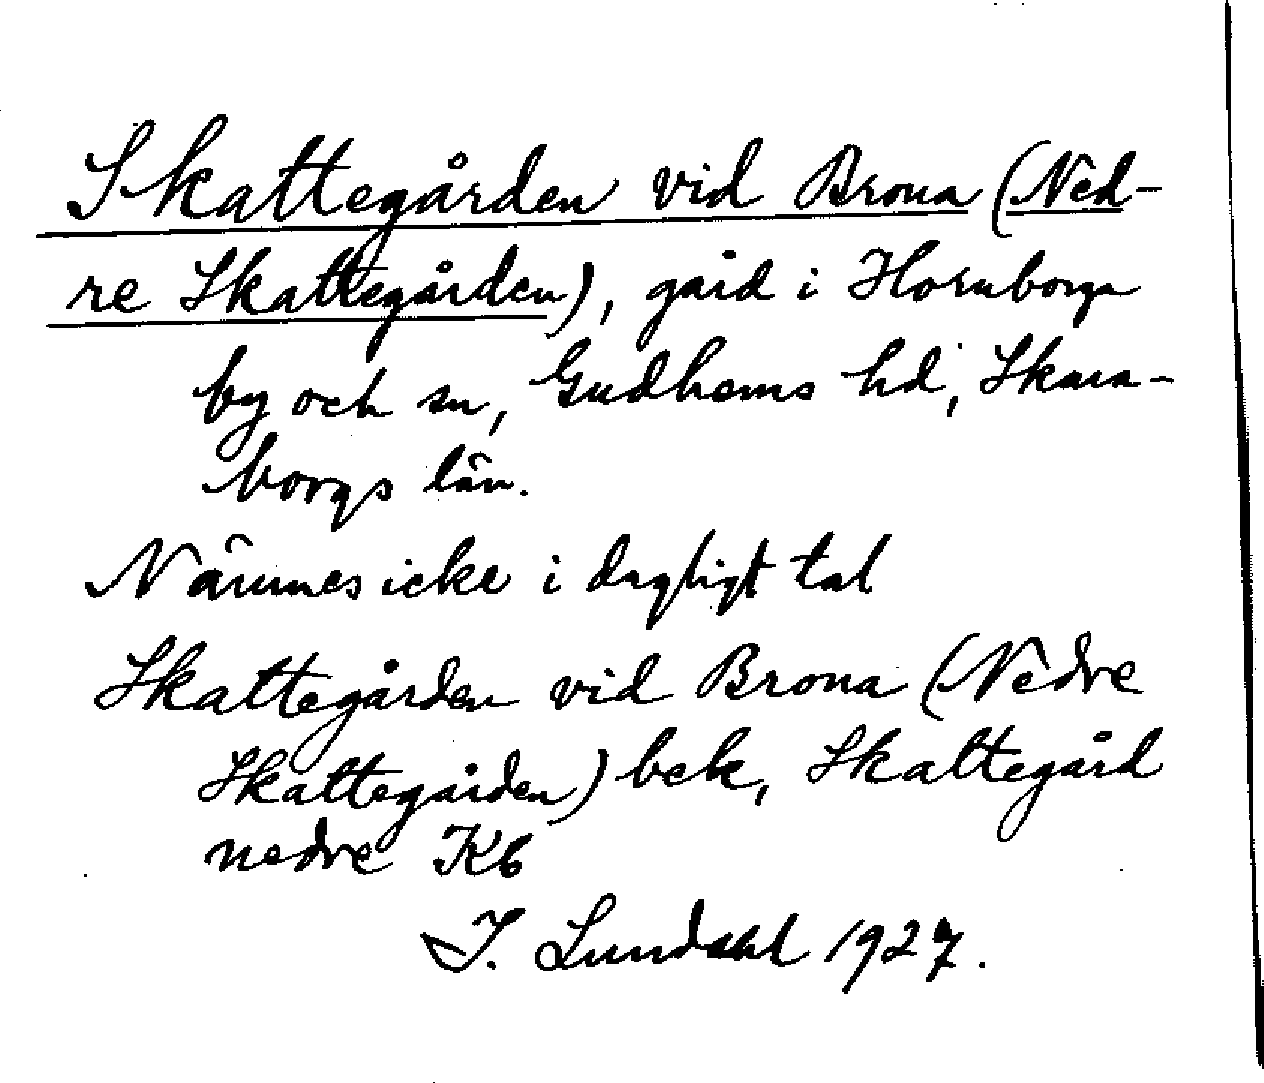 Skattegården vid Brona (Ned-
re Skattegården), gård i Hornborga
by och sn, Gudhems hd, Skara-
borgs län.
Nämnes icke i dagligt tal
Skattegården vid Brona (Nedre
Skattegården) bek, Skattegård
nedre Kb
I. Lundahl 1927.